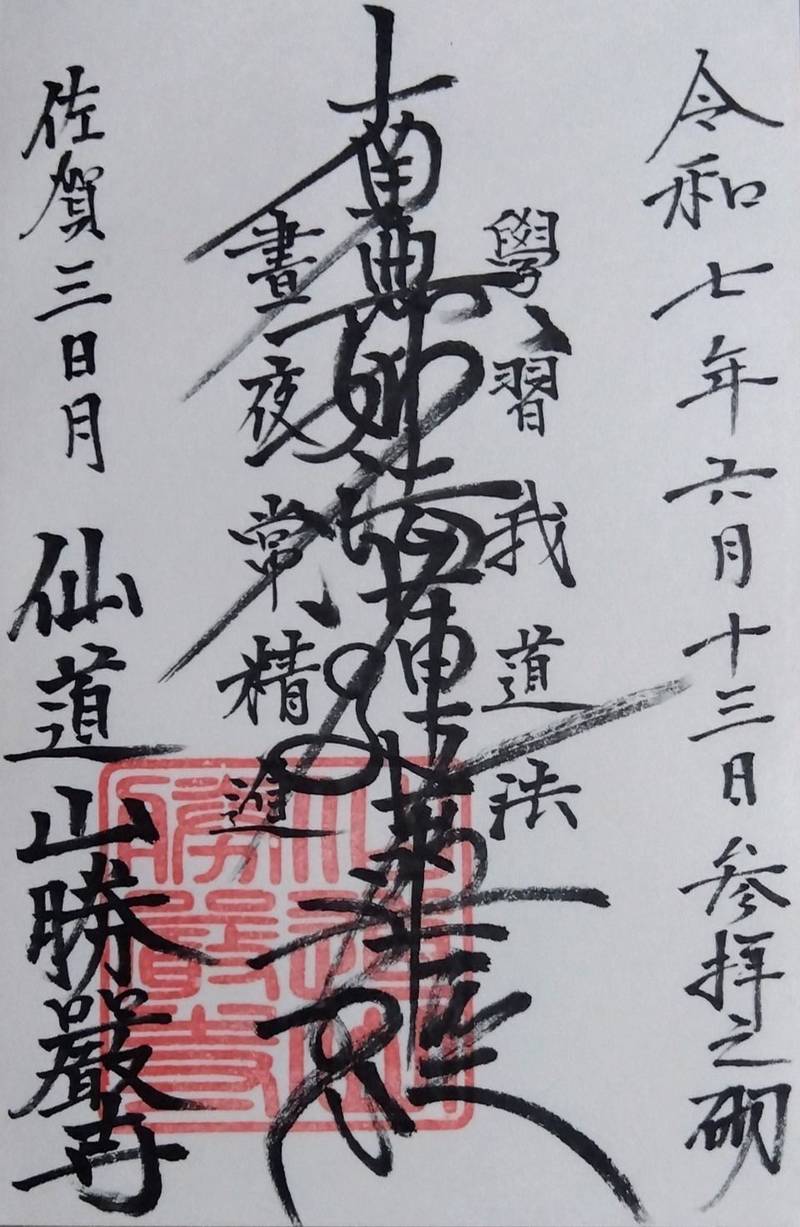 令和七年六月十三日参拝之砌
學習我道法
南無妙法蓮華經
晝夜常精進
佐賀三日月 仙道山勝嚴寺
仙道山
勝嚴寺